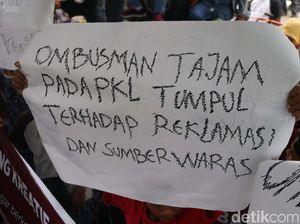 OMBUSMAN TAJAM
PADA PKL TUMPUL
TERHADAP REKLAMASI
DAN SUMBER WARAS
NG KREATIF
detikcom